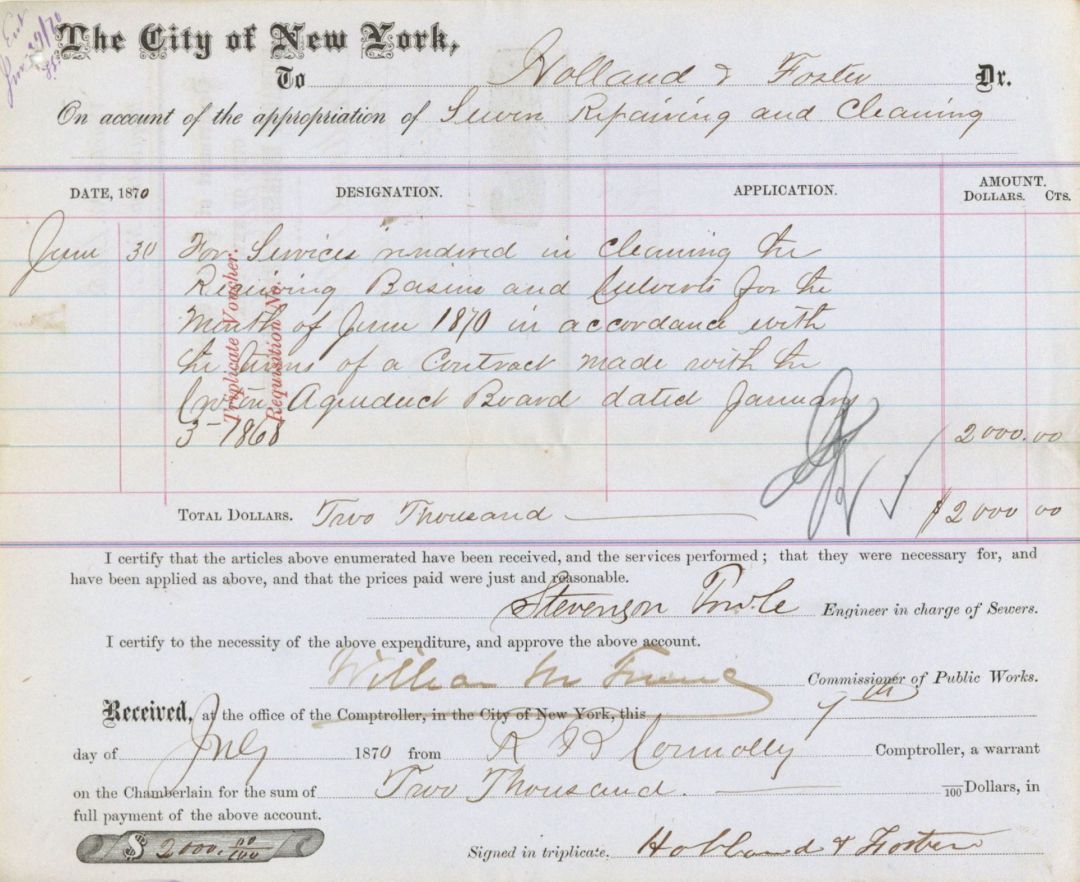 The City of New York,
To Holland & Foster Dr.
On account of the appropriation of Sewer Repairing and Cleaning
DATE, 1870 DESIGNATION. APPLICATION. AMOUNT.
DOLLARS. CTS.
June 30 For Services rendered in cleaning the
Receiving Basins and Culverts for the
Month of June 1870 in accordance with
the terms of a Contract made with the
Croton Aqueduct Board dated January
3 - 1868 2000.00
Triplicate Voucher.
Requisition No.
TOTAL DOLLARS. Two Thousand $2000 00
I certify that the articles above enumerated have been received, and the services performed; that they were necessary for, and
have been applied as above, and that the prices paid were just and reasonable.
Stevenson Towle Engineer in charge of Sewers.
I certify to the necessity of the above expenditure, and approve the above account.
William M Tweed Commissioner of Public Works.
Received, at the office of the Comptroller, in the City of New York, this 7th
day of July 1870 from R B Connolly Comptroller, a warrant
on the Chamberlain for the sum of Two Thousand. /100 Dollars, in
full payment of the above account.
$ 2000. 00/100
Signed in triplicate, Holland & Foster